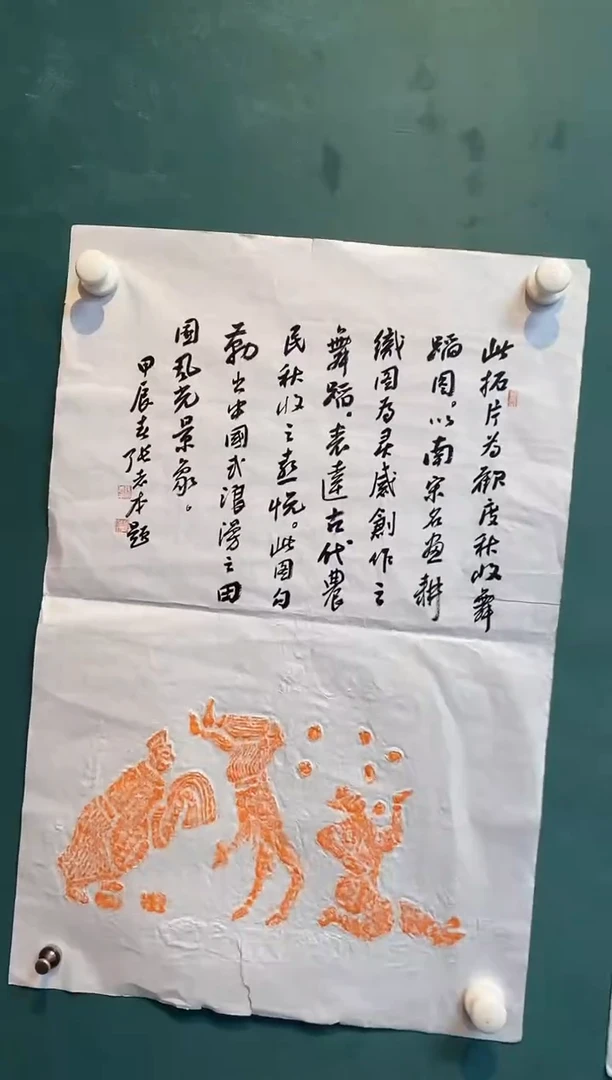 此拓片为歡度秋收舞
蹈图。以南宋名画耕
織图为灵感創作之
舞蹈。表達古代農
民秋收之喜悦。此图勾
勒出中國式浪漫之田
園风光景象。
甲辰春張志本題